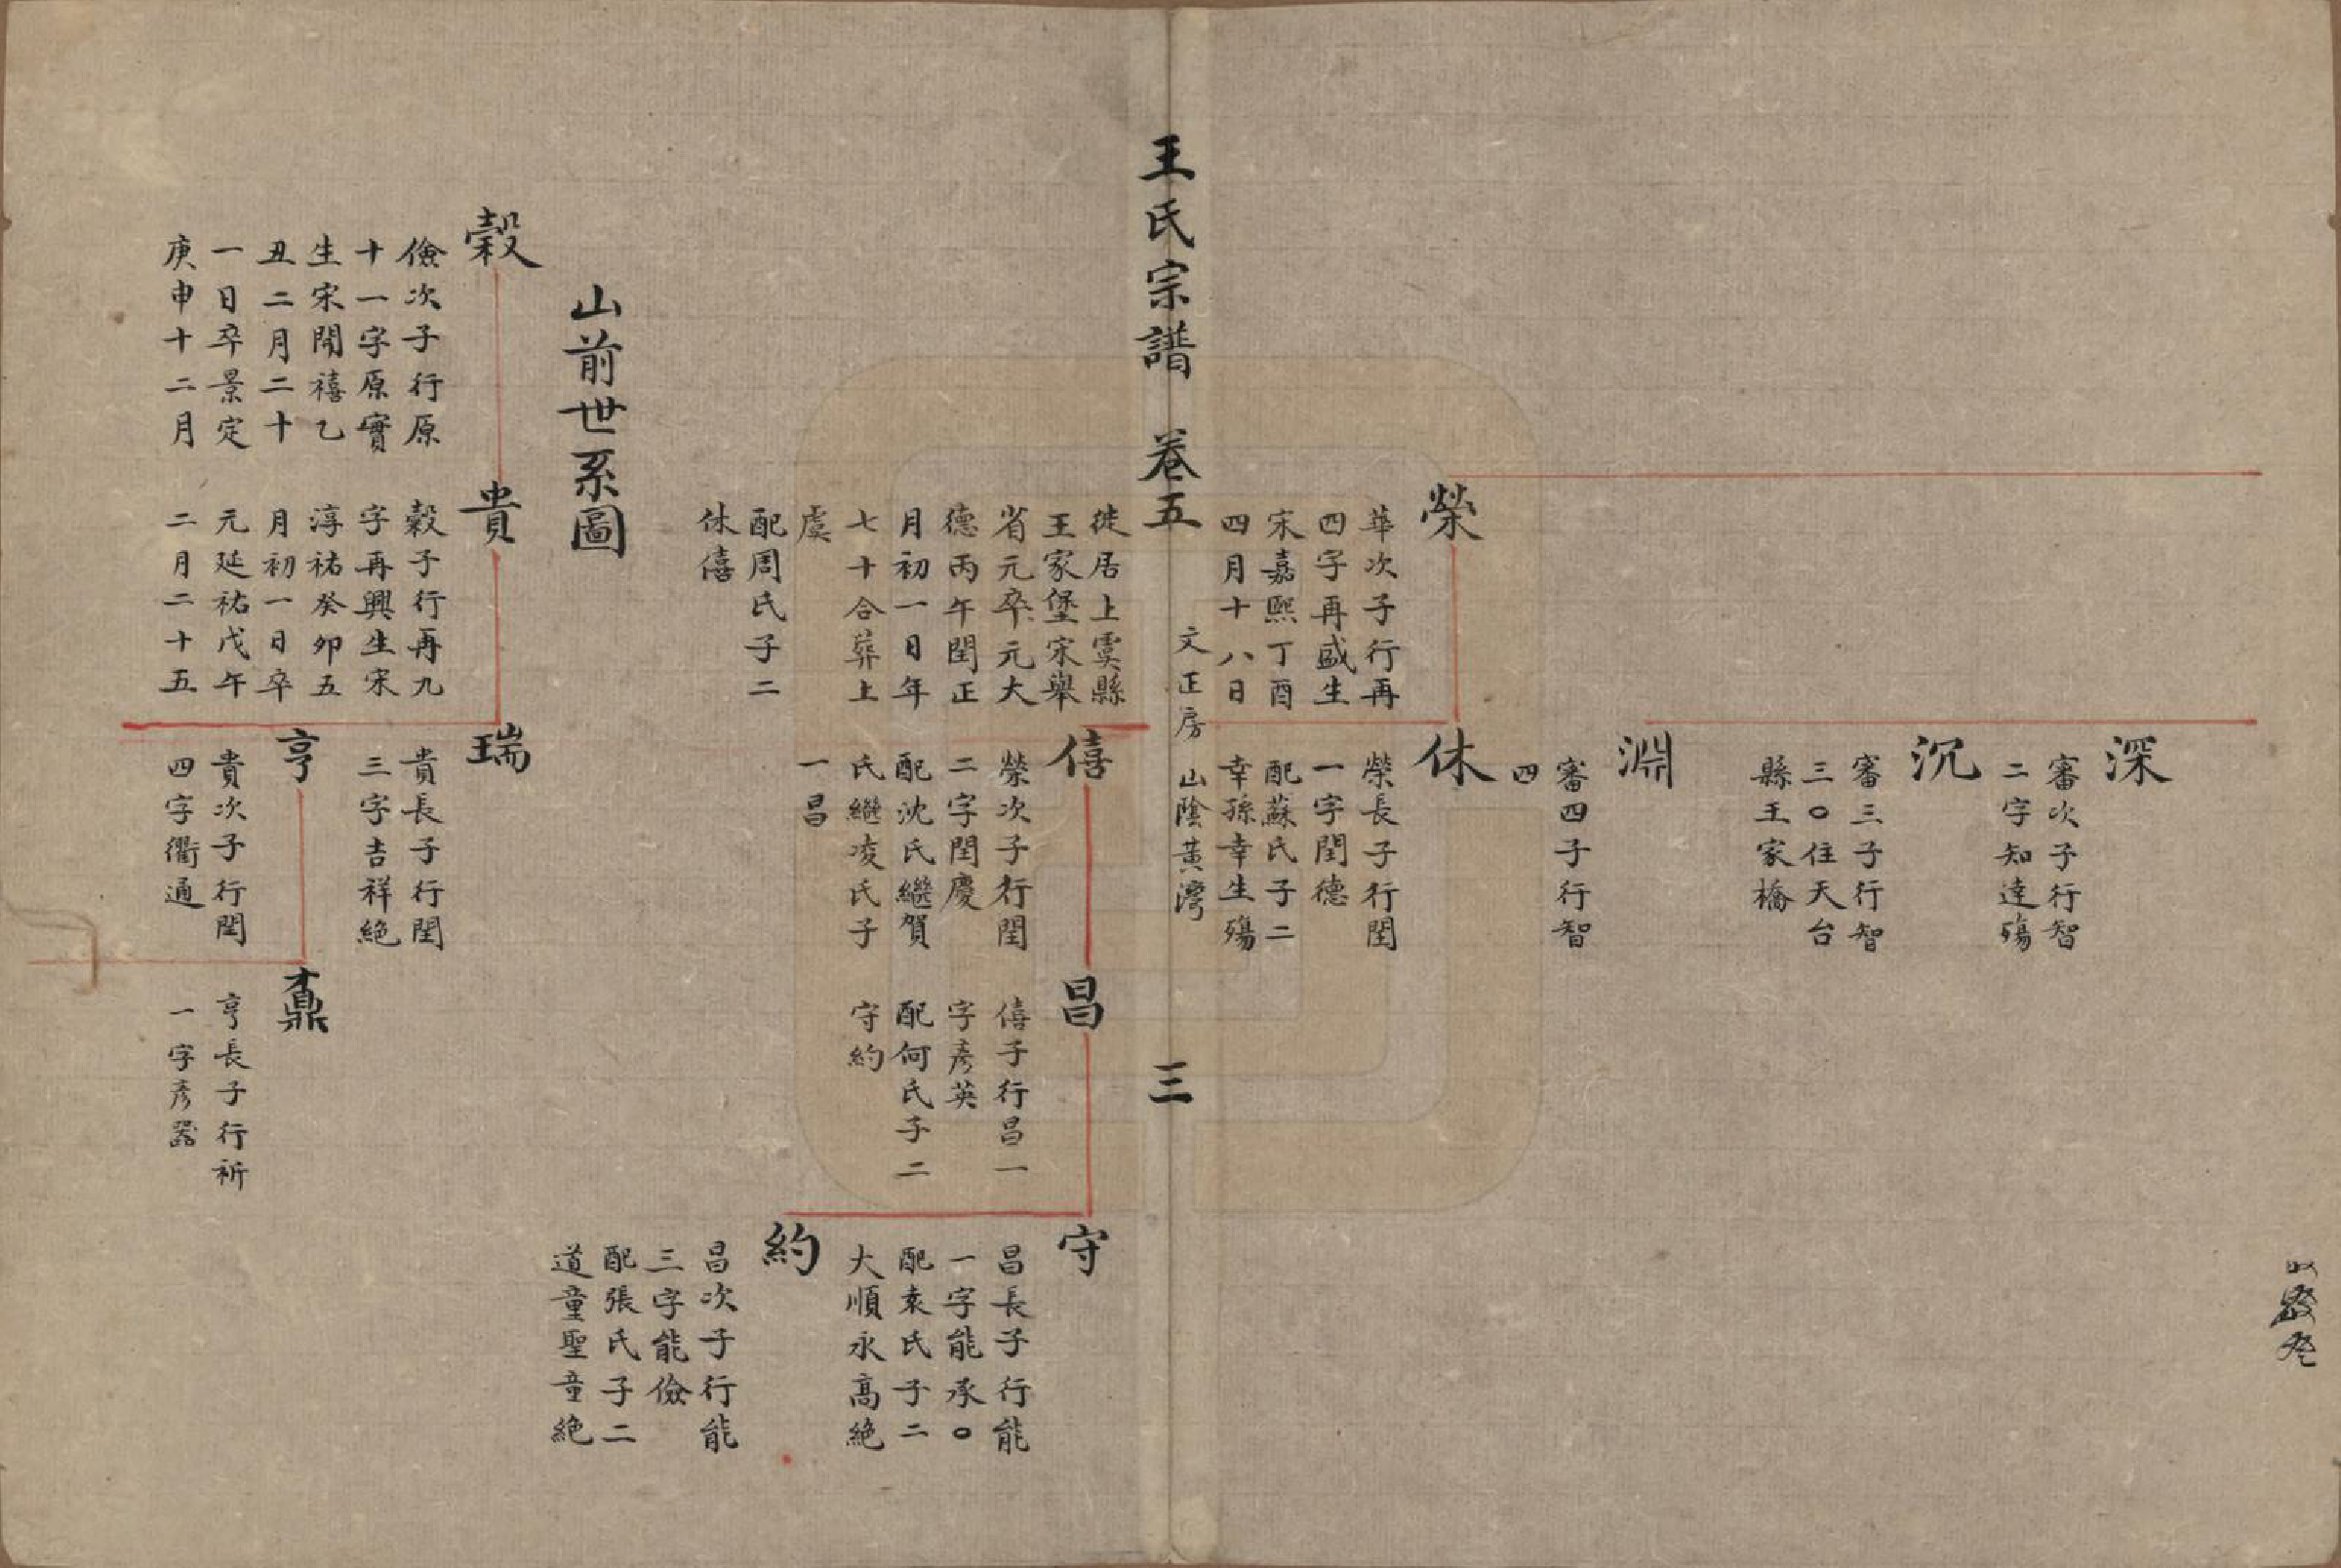 深
審次子行智
二字知達殤
沉
審三子行智
三〇住天台
縣王家橋
淵
審四子行智
四
榮
華次子行再
四字再盛生
宋嘉熙丁酉
四月十八日
徙居上虞縣
王家堡宋舉
省元卒元大
德丙午閏正
月初一日年
七十合葬上
虞
配周氏子二
休僖
休
榮長子行閏
一字閏德
配蘇氏子二
幸孫幸生殤
王氏宗譜 卷五
文正房 山陰黃灣
三
僖
榮次子行閏
二字閏慶
配沈氏繼賀
氏繼凌氏子
一昌
昌
僖子行昌一
字彥英
配何氏子二
守約
守
昌長子行能
一字能承〇
配袁氏子二
大順永高絕
約
昌次子行能
三字能儉
配張氏子二
道童聖童絕
山前世系圖
穀
儉次子行原
十一字原實
生宋開禧乙
丑二月二十
一日卒景定
庚申十二月
貴
穀子行再九
字再興生宋
淳祐癸卯五
月初一日卒
元延祐戊午
二月二十五
瑞
貴長子行閏
三字吉祥絕
亨
貴次子行閏
四字衢通
鼒
亨長子行祈
一字彥器